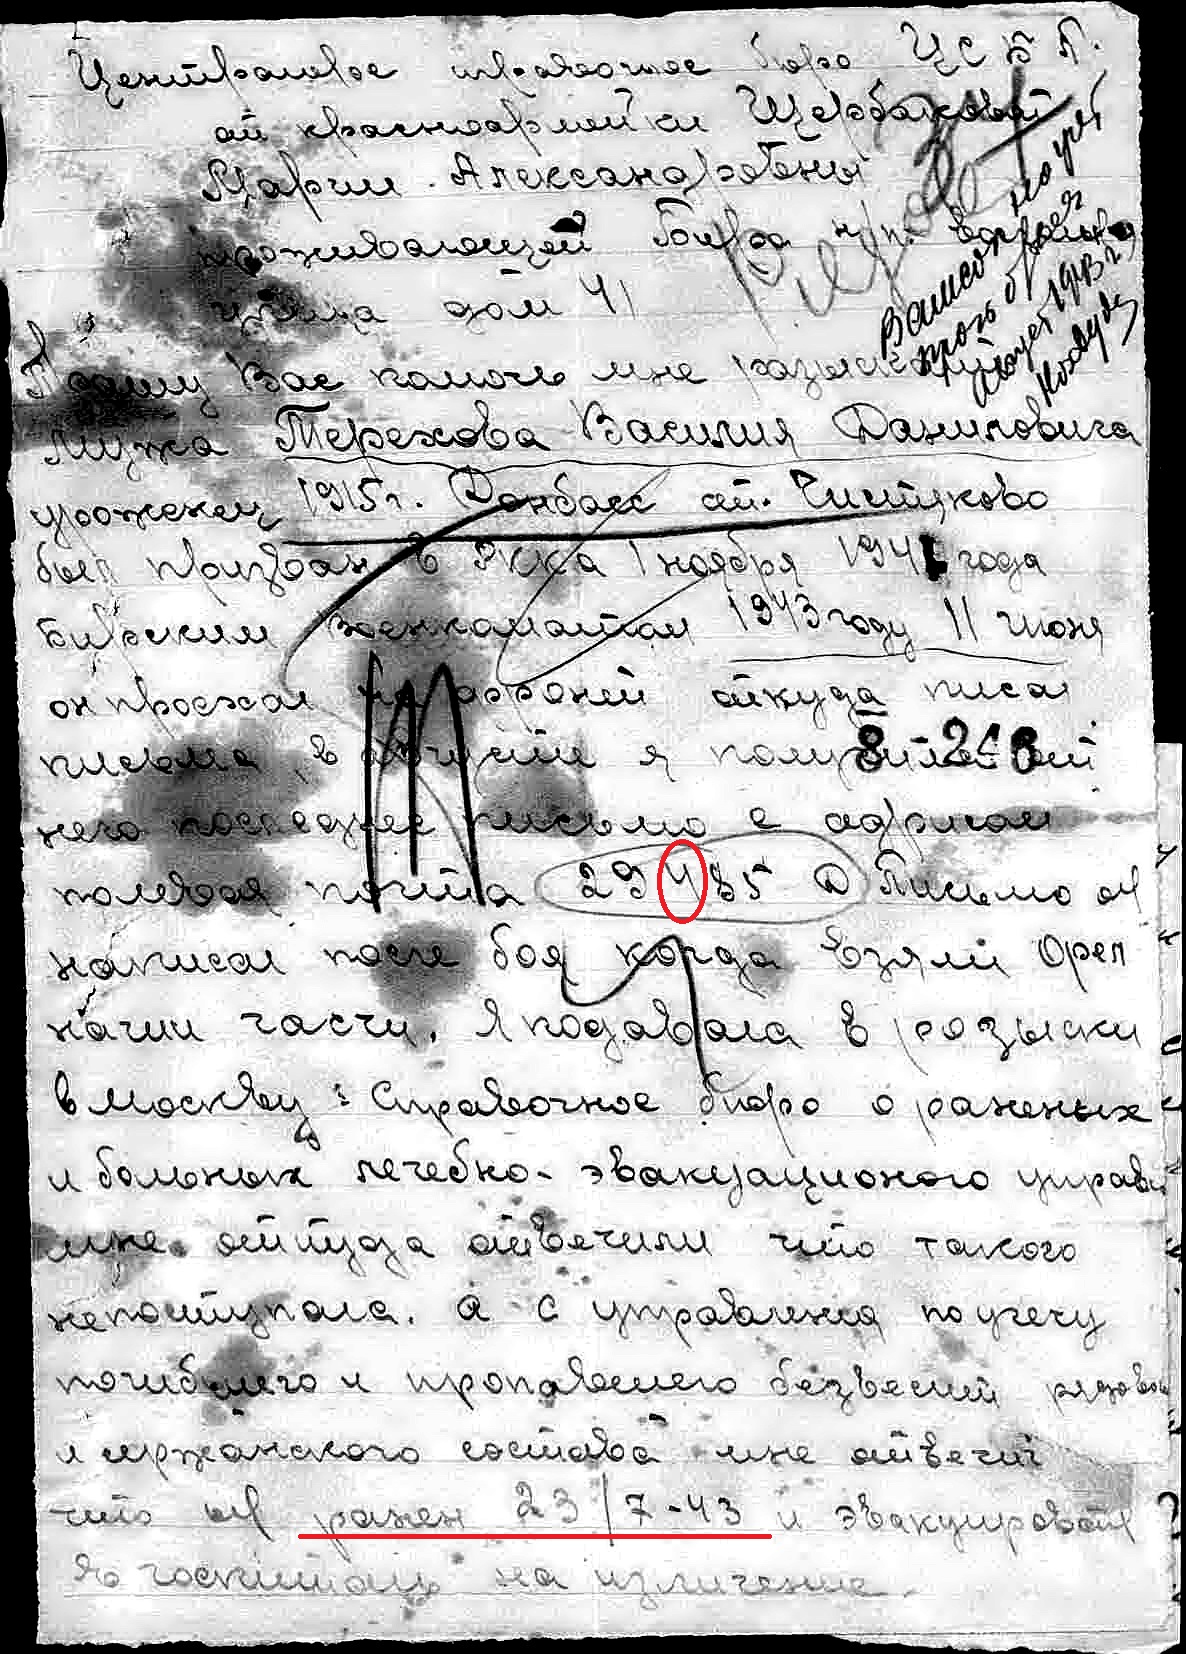 Центральное справочное бюро ЦСБ П.
от красноармейки Щербаковой
Марии Александровны
проживающей Бирск
улица дом 41
Прошу Вас помочь мне разыскать
мужа Терехова Василия Даниловича
уроженец 1915 г. Донбасс ст. Чистяково
был призван в РККА 1 ноября 1941 года
Бирским военкоматом 1943 году 11 июня
он проехал на фронт откуда писал
письма, в августе я получила от
8-218
него последнее письмо с адресом
полевая почта 29485 Д Письмо он
написал после боя когда взяли Орел
наши части. Я подавала в розыски
в Москву: Справочное бюро о раненых
и больных лечебно-эвакуационого управл
мне оттуда ответили что такого
непоступала. а с управления по учечу
погибшего и пропавшего безвести рядовог
и сержанского состава мне ответил
что он ранен 23/7-43 и эвакуироват
в госпиталь на изличение.